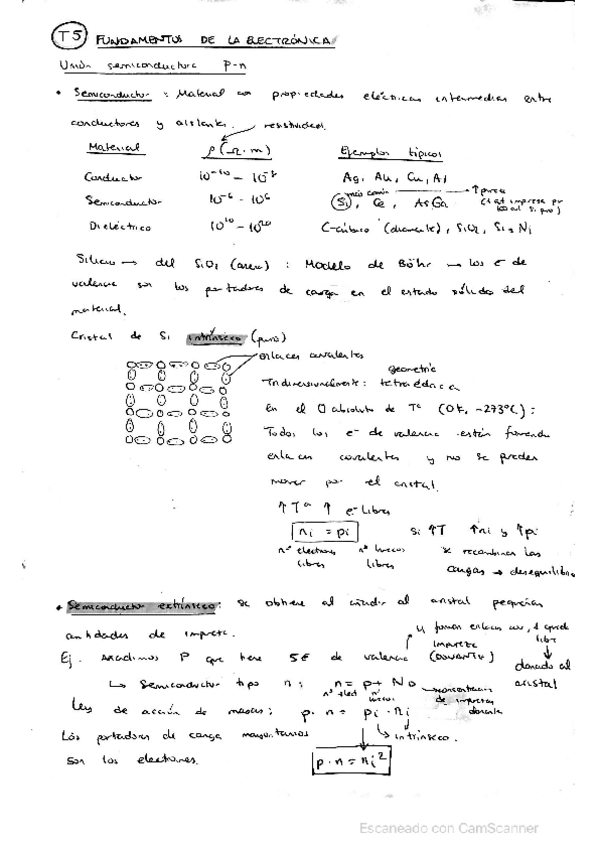 T5 FUNDAMENTOS DE LA ELECTRÓNICA
Unión semiconductora P-n
• Semiconductor : Material con propiedades eléctricas intermedias entre
conductores y aislantes. resistividad
Material ρ(Ω·m) Ejemplos típicos
Conductor 10⁻¹⁰ – 10⁻⁸ Ag, Au, Cu, Al
más común ↑ pureza
Semiconductor 10⁻⁶ – 10⁶ Si, Ge, AsGa (1 at impureza por
Si puro)
Dieléctrico 10¹⁰ – 10²⁰ C-cúbico (diamante), SiO₂, Si₃N₄
Silicio → del SiO₂ (arena) : Modelo de Böhr → los e⁻ de
valencia son los portadores de carga en el estado sólido del
material.
Cristal de Si intrínseco (puro)
enlaces covalentes
geometría
Tridimensionalmente: tetraédrica
En el 0 absoluto de Tª (0K, -273ºC) :
Todos los e⁻ de valencia están formando
enlaces covalentes y no se pueden
mover por el cristal.
↑Tª ↑ e⁻ libres
ni = pi si ↑T ↑ni y ↑pi
nº electrones libres nº huecos libres se recombinan las
cargas → desequilibrio
• Semiconductor extrínseco: se obtiene al añadir al cristal pequeñas
cantidades de impureza.
forman enlaces cov, 1 queda libre
impureza
Ej. Añadimos P que tiene 5e⁻ de valencia (DONANTE)
donado al cristal
↳ Semiconductor tipo n: n = p + ND
nº elect nº huecos concentración de impurezas donante
Ley de acción de masas: p·n = pi·ni
↳ intrínseco.
Los portadores de carga mayoritarios
son los electrones. p·n = ni²
Escaneado con CamScanner